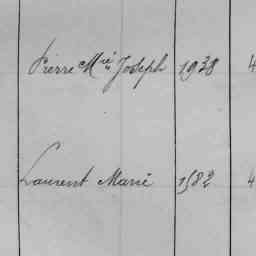 Pierre Mie Joseph 1938 4
Laurent Marie 1582 4